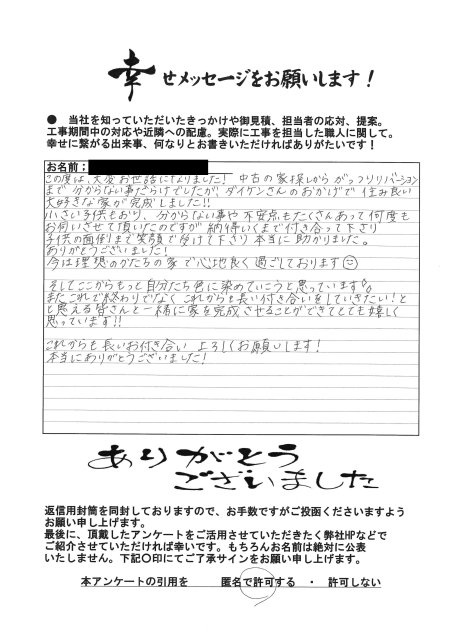 幸せメッセージをお願いします！
● 当社を知っていただいたきっかけや御見積、担当者の応対、提案。
工事期間中の対応や近隣への配慮。実際に工事を担当した職人に関して。
幸せに繋がる出来事、何なりとお書きいただければありがたいです！
お名前：
この度は、大変お世話になりました！ 中古の家探しから がっつりリノベーション
まで 分からない事だらけでしたが、ダイケンさんの おかげで 住み良い
大好きな家が 完成しました!!
小さい子供もおり、分からない事や 不安点も たくさんあって 何度も
お伺いさせて頂いたのですが 納得いくまで 付き合って下さり
子供の面倒まで 笑顔で 受けて下さり 本当に 助かりました。
ありがとうございました！
今は理想のかたちの 家 で 心地良く 過ごしております
そしてここからもっと 自分たち色に 染めていこうと思っています
また これで終わりでなく これからも 長い付き合いをしていきたい！と
と思える皆さんと 一緒に家を完成させることができて とても嬉しく
思っています!!
これからも 長いお付き合い よろしくお願いします！
本当にありがとうございました！
ありがとう
ございました
返信用封筒を同封しておりますので、お手数ですがご投函くださいますよう
お願い申し上げます。
最後に、頂戴したアンケートをご活用させていただきたく弊社HPなどで
ご紹介させていただければ幸いです。もちろんお名前は絶対に公表
いたしません。下記〇印にてご了承サインをお願い申し上げます。
本アンケートの引用を 匿名で許可する ・ 許可しない